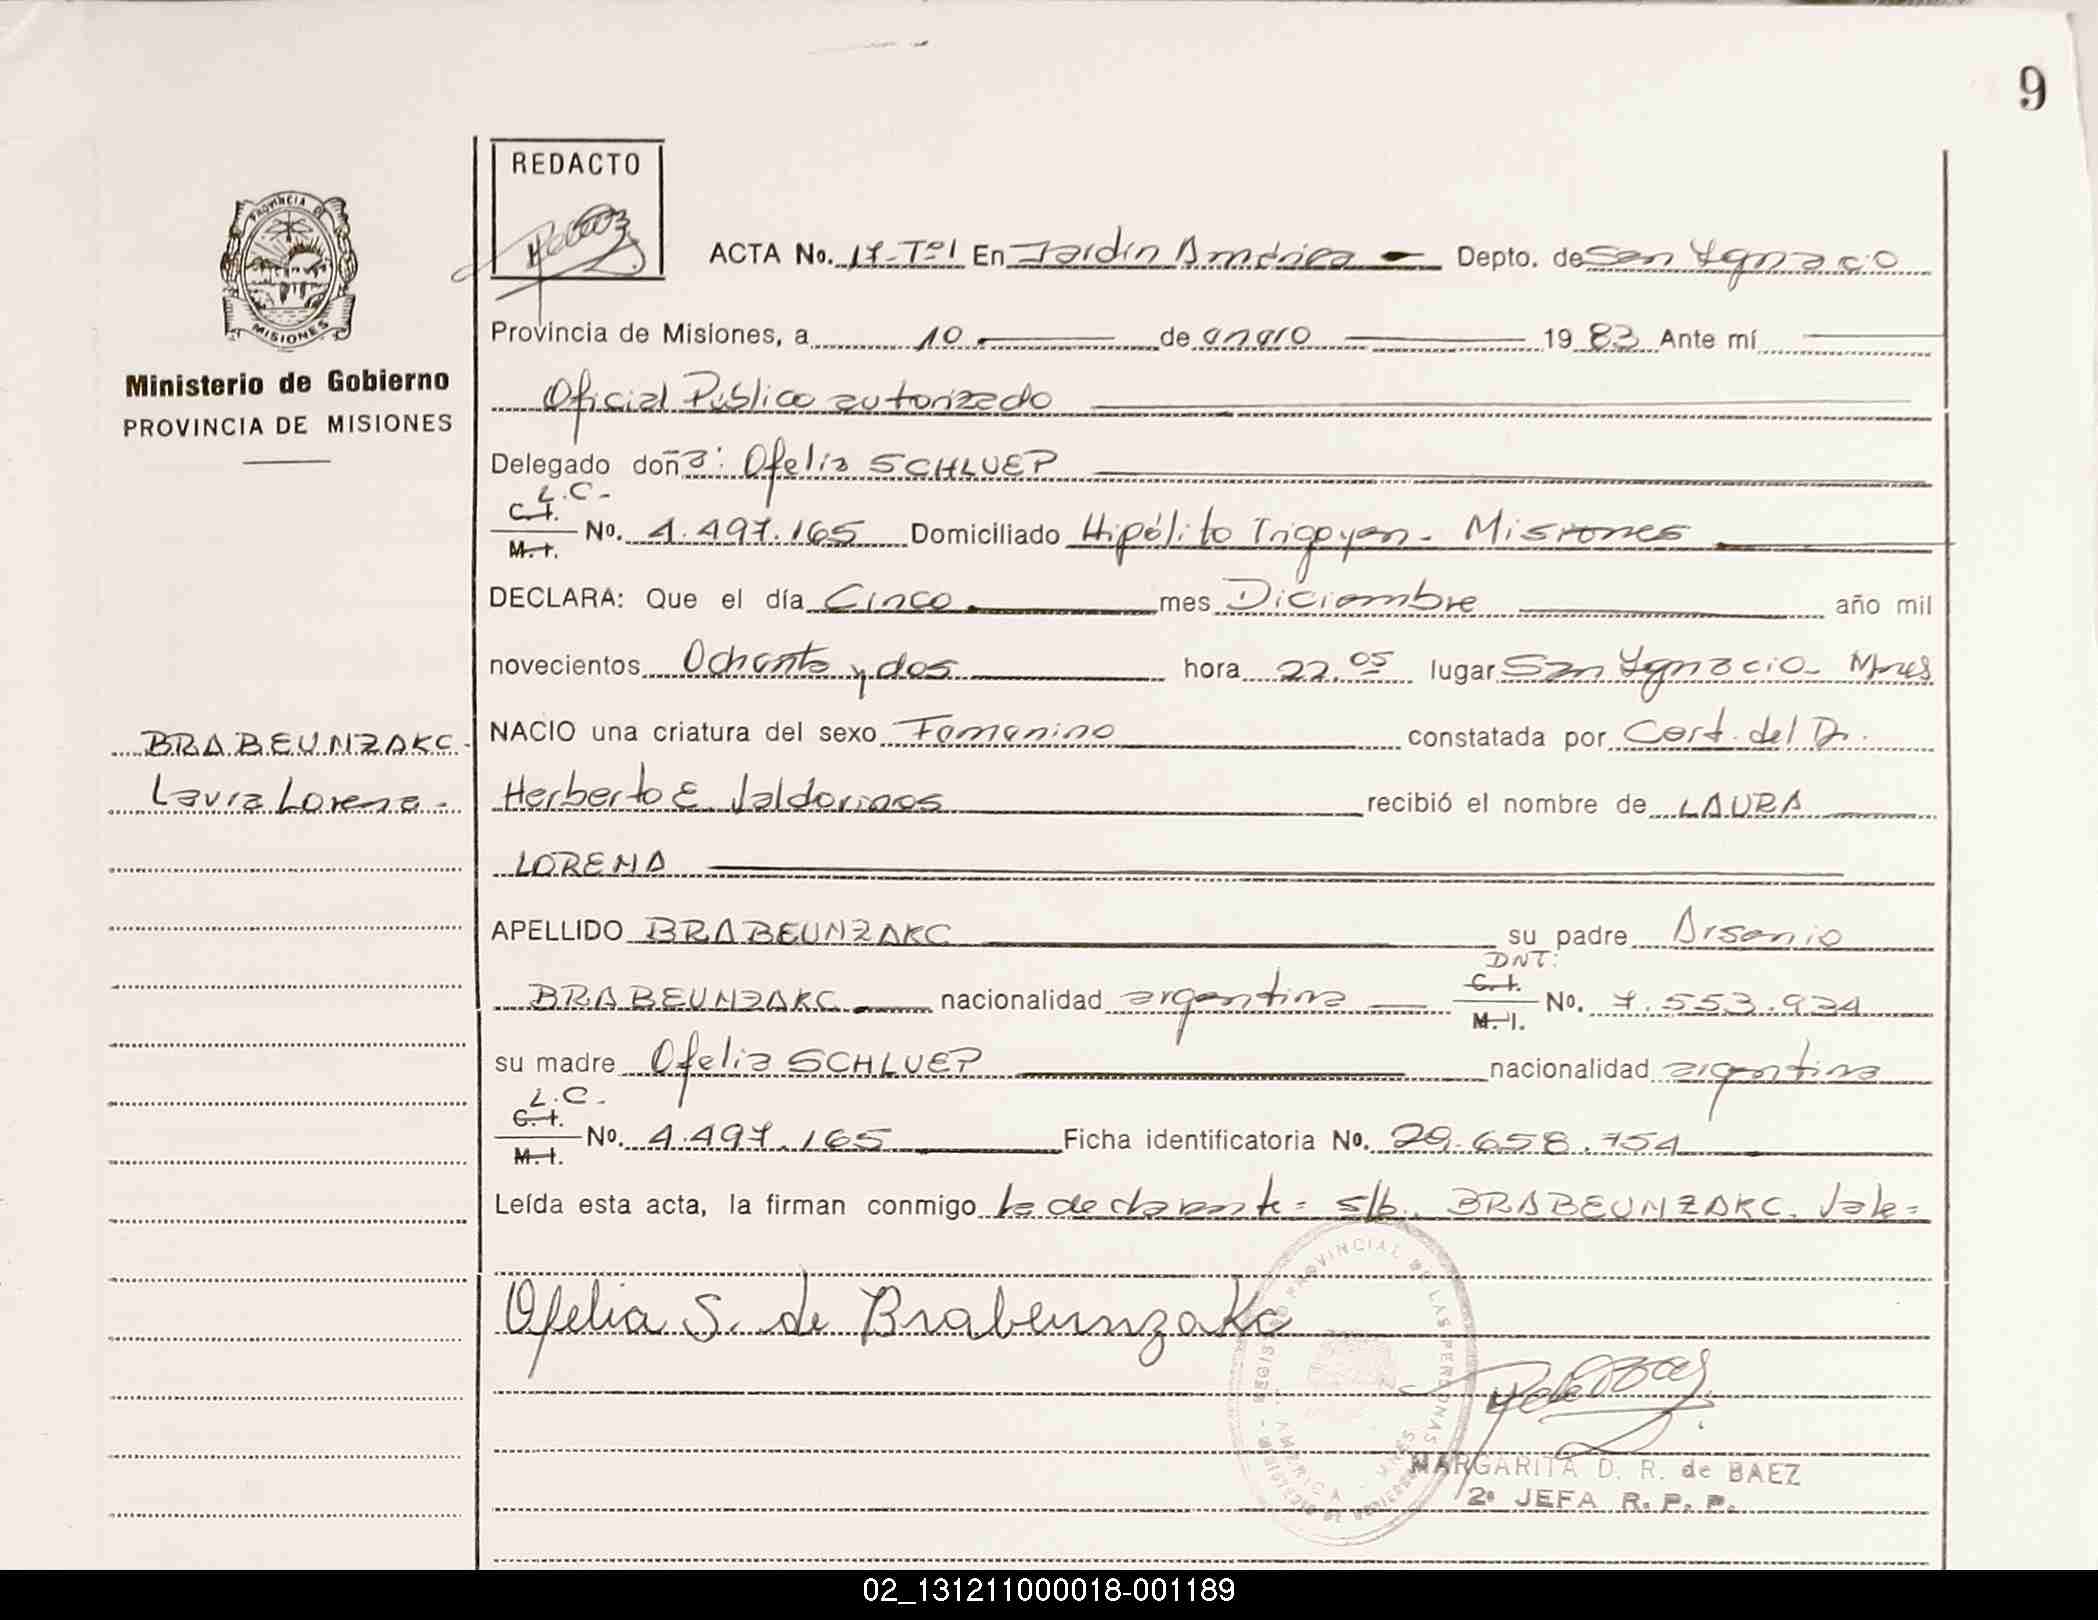 9
REDACTO
PROVINCIA DE
MISIONES
Ministerio de Gobierno
PROVINCIA DE MISIONES
ACTA No. 17-Tº1 En Jardín América Depto. de San Ygnacio
Provincia de Misiones, a 10 de enero 1983 Ante mí
Oficial Público autorizado
Delegado doña: Ofelia SCHLUEP
L.C.-
C.I.
M.I. No. 4.497.165 Domiciliado Hipólito Irigoyen. Misiones
DECLARA: Que el día Cinco mes Diciembre año mil
novecientos Ochenta y dos hora 22.05 lugar San Ygnacio Mnes
BRABEUNZAKC- NACIO una criatura del sexo Femenino constatada por Cert. del Dr.
Laura Lorena- Herberto E. recibió el nombre de LAURA
LORENA
APELLIDO BRABEUNZAKC su padre Arsenio
DNI:
BRABEUNZAKC nacionalidad argentina C.I. M.I. No. 7.553.934
su madre Ofelia SCHLUEP nacionalidad argentina
L.C.-
C.I.
M.I. No. 4.497.165 Ficha identificatoria No. 29.658.754
Leída esta acta, la firman conmigo la declarante= s/b. BRABEUNZAKC. Vale=
Ofelia S. de Brabeunzakc
REGISTRO PROVINCIAL DE LAS PERSONAS
AMERICA - MNES
MARGARITA D. R. de BAEZ
2º JEFA R. P. P.
02_131211000018-001189